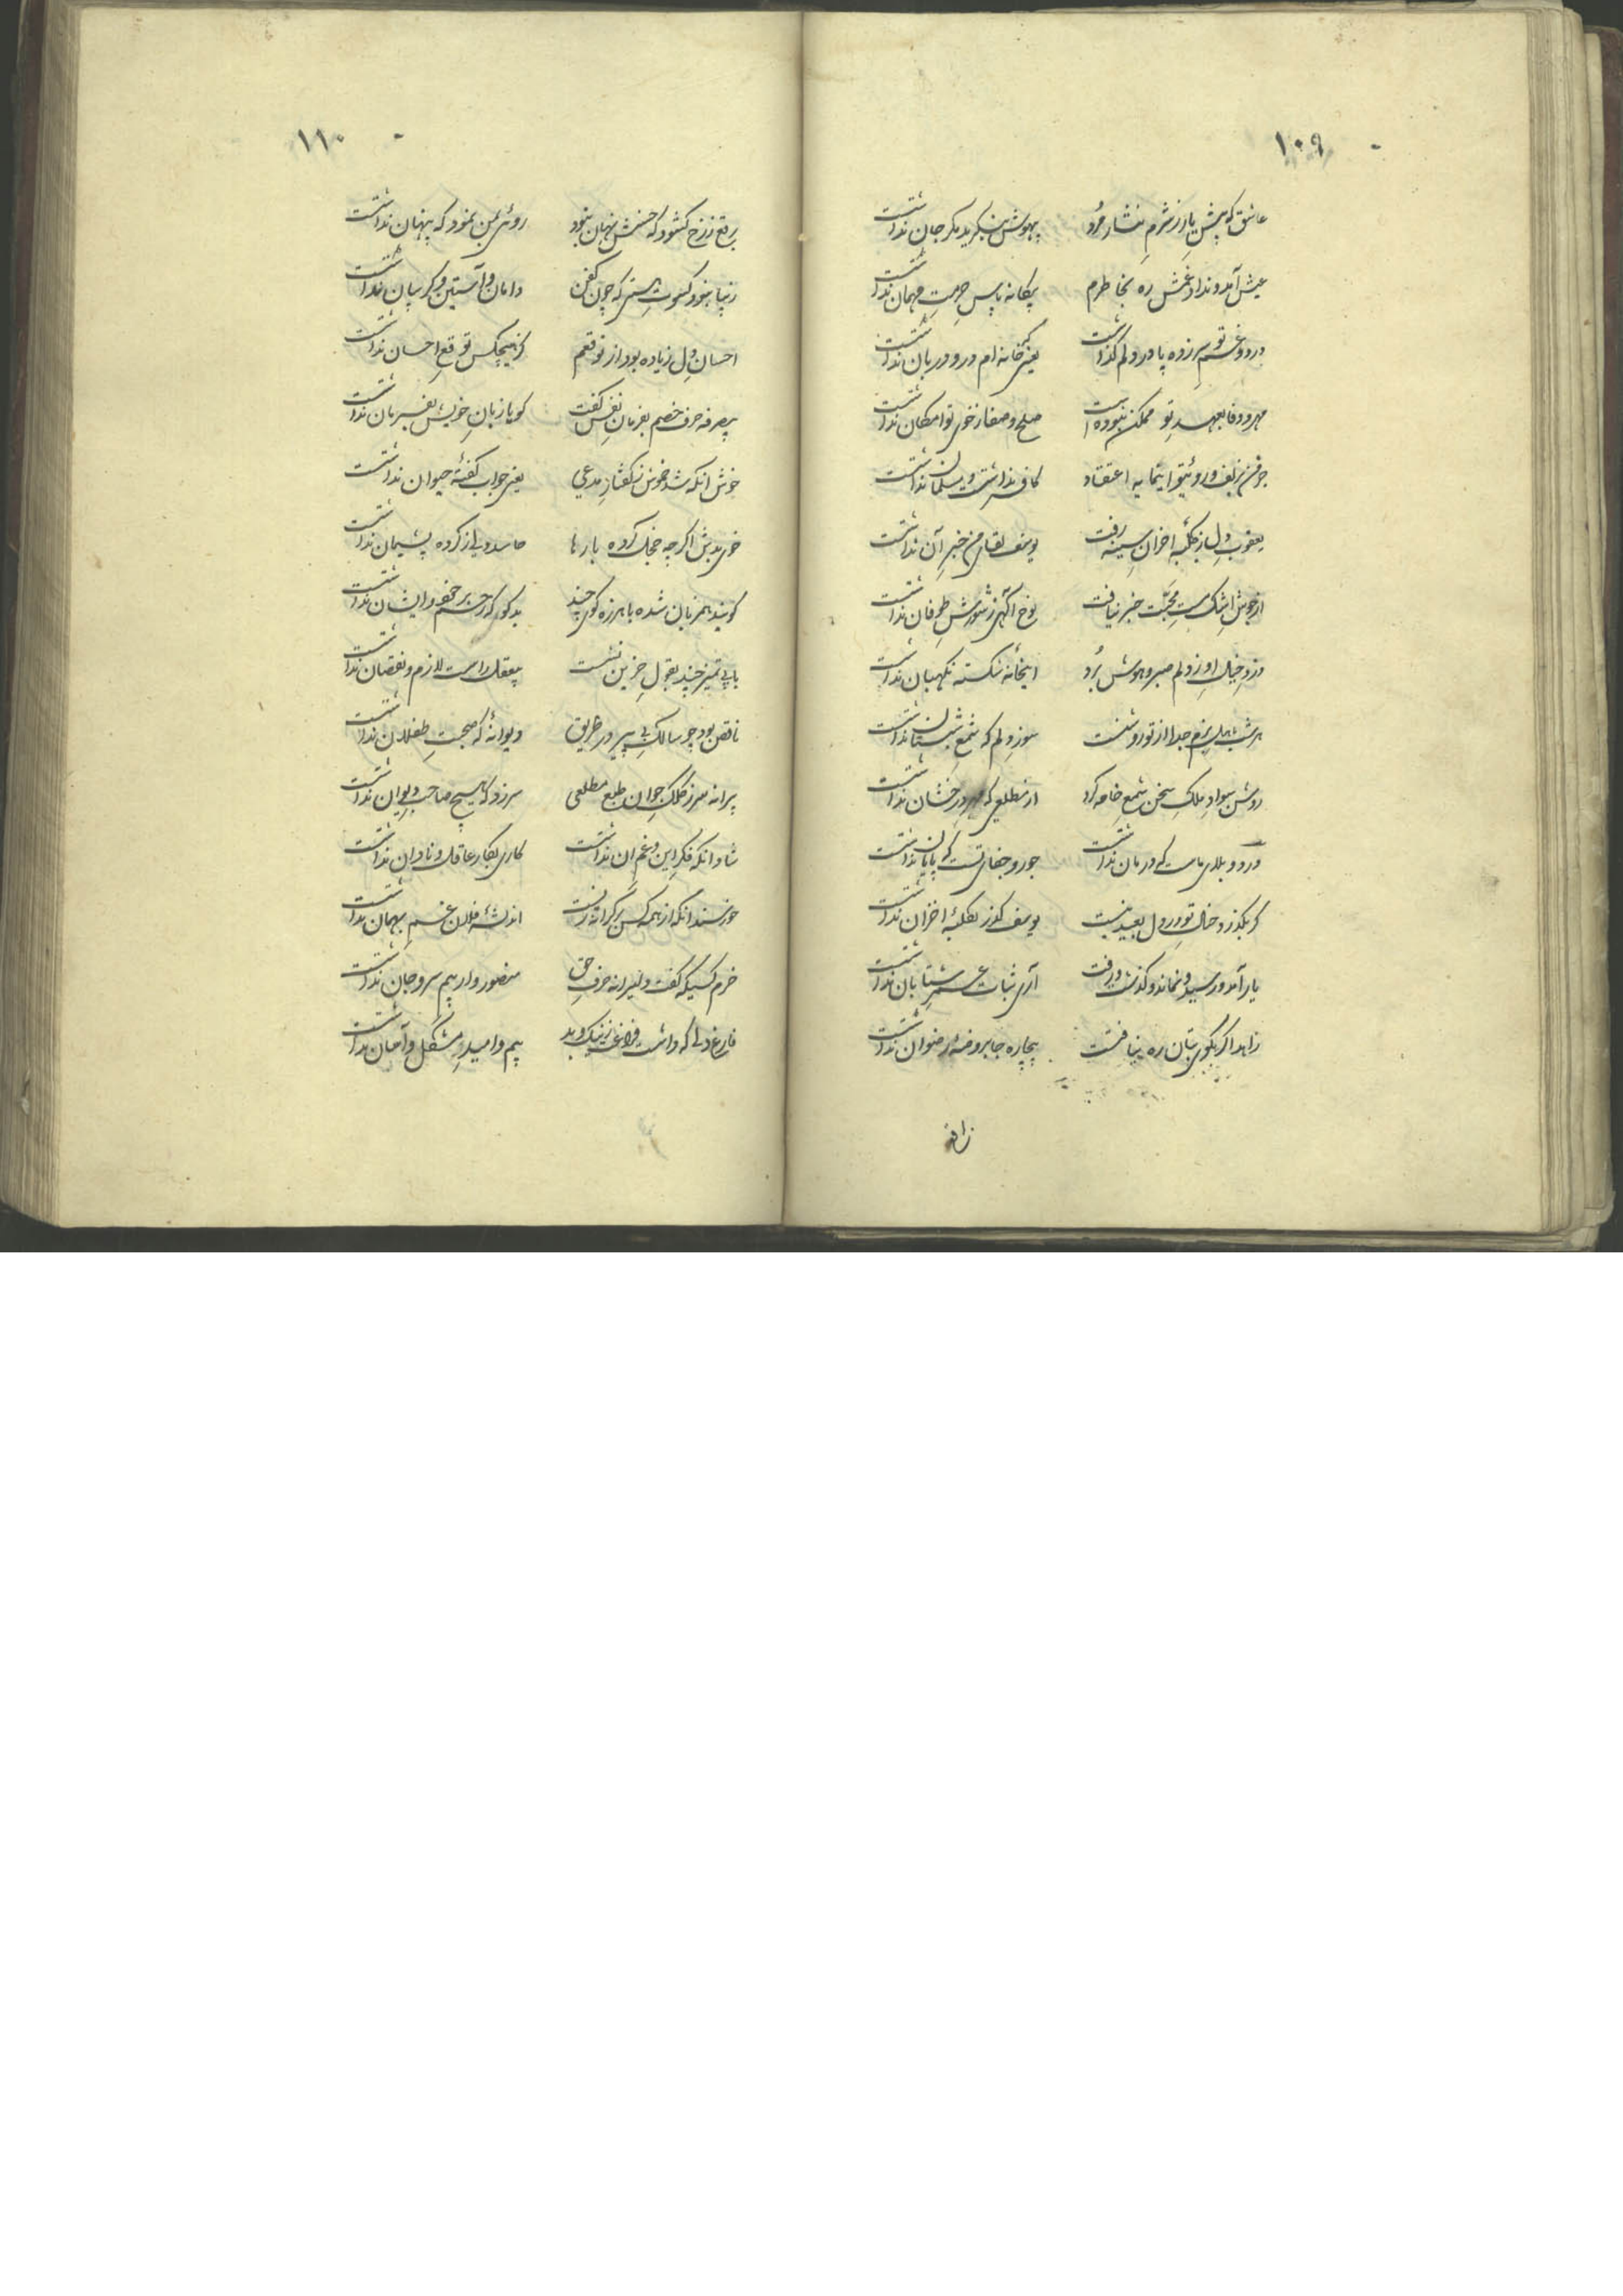 ۱۰۹
عاشق که پیش یار ز شرم نثار مرد بیهوش بنگرید مگر جان نداشت
عیش آمد و نداد غمش ره بخاطرم بیگانه پاس حرمت مهمان نداشت
درد و غم تو سرزده پا در دلم گذاشت یعنی که خانه ام در و دربان نداشت
مهر و وفا بعهد تو ممکن نبوده است صلح و صفا ز خوی تو امکان نداشت
جز من بزلف و روی تو ایمایه اعتقاد کافر نداشت و مسلمان نداشت
یعقوب دل ز کلبه احزان سینه رفت یوسف لقای من خبر آن نداشت
از جوش اشک مست محبت خبر نیافت نوح آگهی ز شورش طوفان نداشت
دزد خیال او ز دلم صبر و هوش برد این خانه شکسته نگهبان نداشت
هر شب اهل بزم جدا از تو روشنست سوز دلم که شمع شبستان نداشت
روشن سواد ملک سخن شمع خامه کرد از مطلعی که مهر درخشان نداشت
درد و بلای ماست که درمان نداشت جور و جفای تست که پایان نداشت
گر بگذرد خیال تو در دل بعید نیست یوسف گذر بکلبۀ احزان نداشت
یار آمد و رسید و نماند و گذشت و رفت آری ثبات عمر شتابان نداشت
زاهد اگر بکوی بتان ره نیافتست بیچاره جا بروضۀ رضوان نداشت
۱۱۰
برقع ز رخ گشود که حسنش نهان نبود روئی بمن نمود که پنهان نداشت
زیبا نبود کسوت هستی که چون کفن دامان و آستین و گریبان نداشت
احسان دل زیاده بود از توقعم کز هیچکس توقع احسان نداشت
بیصرفه حرف خصم بفرمان نفس گفت گویا زبان خویش بفرمان نداشت
خوش آنکه شد خموش ز گفتار مدعی یعنی جواب گفتۀ حیوان نداشت
خوی بدش اگر چه خجل کرده بارها حاسد دلی ز کرده پشیمان نداشت
گویند همزبان شده با هرزه گوی چند
با بی تمیز چند بقول حزین نشست بیعقل راست لازم و نقصان نداشت
ناقص بود چو سالک بی پیر در طریق دیوانۀ که صحبت طفلان نداشت
پیرانه سر ز کلک جوان طبع مطلعی سر زد که هیچ صاحب دیوان نداشت
شاد آنکه فکر این و غم آن نداشت کاری بکار عاقل و نادان نداشت
خورسند آنکه از همه کس بر کرانه زیست اندیشۀ فلان غم بهمان نداشت
خرم کسیکه گفت دلیرانه حرف حق منصور وار بیم سر و جان نداشت
فارغ دلی که داشت فراغت ز نیک و بد بیم و امید مشکل و آسان نداشت